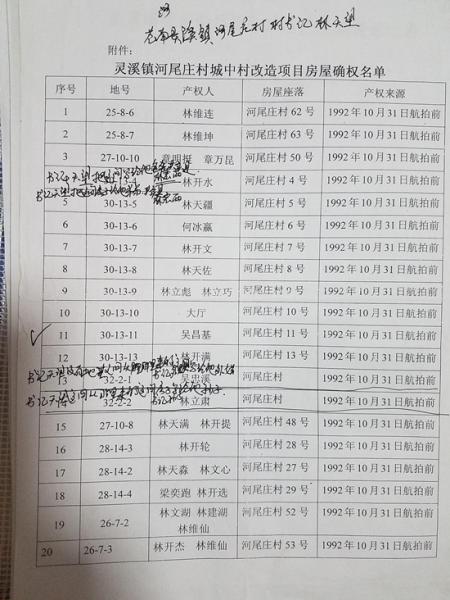 河
苍南县灵溪镇河尾庄村 村书记 林天望
附件:
灵溪镇河尾庄村城中村改造项目房屋确权名单
序号 地号 产权人 房屋座落 产权来源
1 25-8-6 林维连 河尾庄村 62 号 1992 年 10 月 31 日航拍前
2 25-8-7 林维坤 河尾庄村 63 号 1992 年 10 月 31 日航拍前
3 27-10-10 章明挺 章万昆 河尾庄村 50 号 1992 年 10 月 31 日航拍前
30-13-4 林开水 河尾庄村 4 号 1992 年 10 月 31 日航拍前
5 30-13-5 林天疆 河尾庄村 5 号 1992 年 10 月 31 日航拍前
6 30-13-6 何冰赢 河尾庄村 6 号 1992 年 10 月 31 日航拍前
7 30-13-7 林开文 河尾庄村 7 号 1992 年 10 月 31 日航拍前
8 30-13-8 林天佐 河尾庄村 8 号 1992 年 10 月 31 日航拍前
9 30-13-9 林立彪 林立巧 河尾庄村 9 号 1992 年 10 月 31 日航拍前
10 30-13-10 大厅 河尾庄村 10 号 1992 年 10 月 31 日航拍前
11 30-13-11 吴昌基 河尾庄村 11 号 1992 年 10 月 31 日航拍前
12 30-13-13 林开满 河尾庄村 13 号 1992 年 10 月 31 日航拍前
13 32-2-1 河尾庄村 1992 年 10 月 31 日航拍前
32-2-2 林立肃 河尾庄村 1992 年 10 月 31 日航拍前
15 27-10-8 林天满 林开提 河尾庄村 48 号 1992 年 10 月 31 日航拍前
16 28-14-3 林开轮 河尾庄村 28 号 1992 年 10 月 31 日航拍前
17 28-14-2 林天淼 林文心 河尾庄村 27 号 1992 年 10 月 31 日航拍前
18 28-14-4 梁奕跑 林开选 河尾庄村 29 号 1992 年 10 月 31 日航拍前
19 26-7-2 林文湖 林建湖 林维仙 河尾庄村 52 号 1992 年 10 月 31 日航拍前
20 26-7-3 林开杰 林维仙 河尾庄村 53 号 1992 年 10 月 31 日航拍前